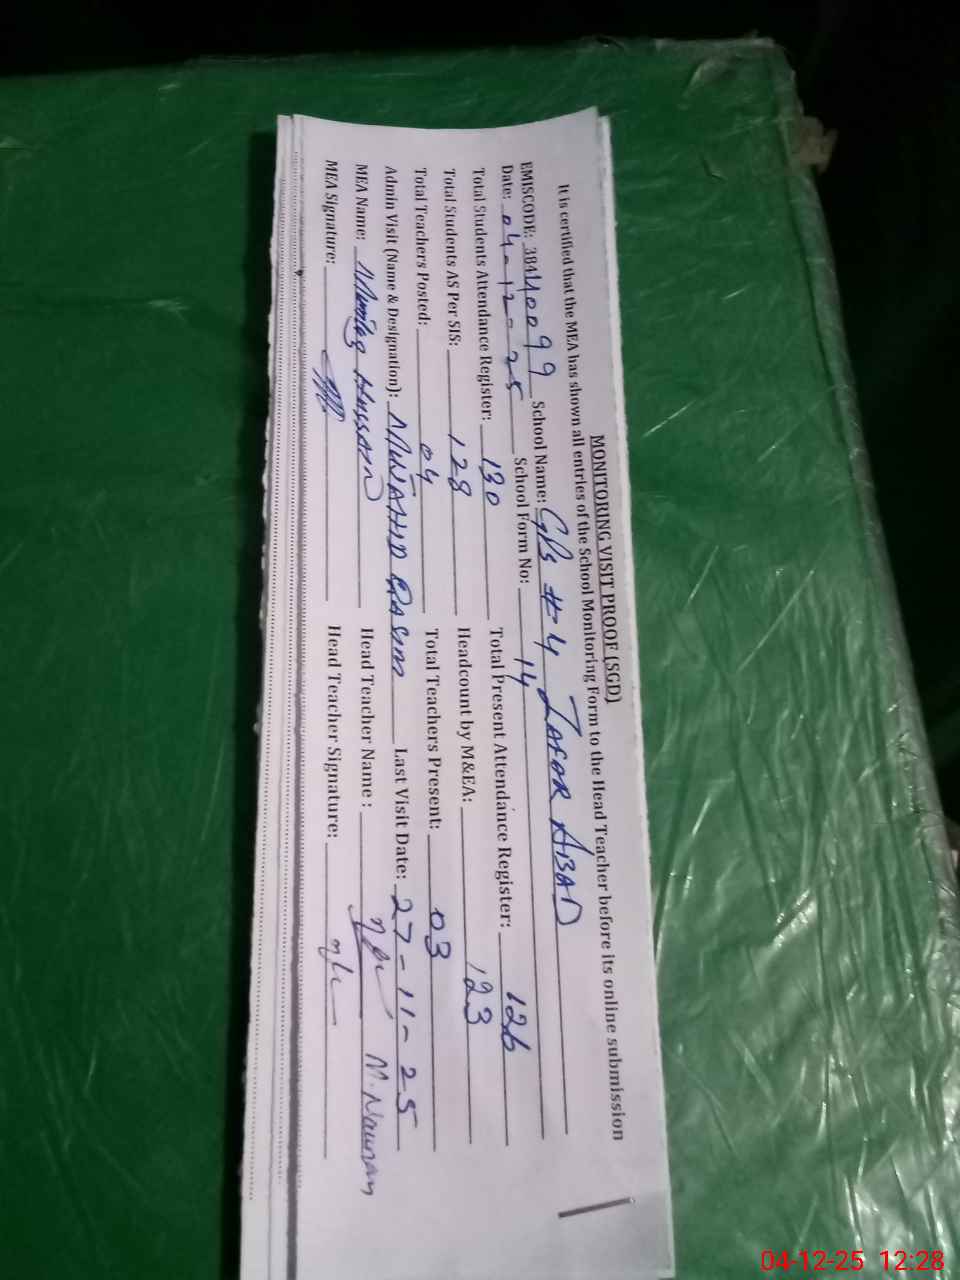 MONITORING VISIT PROOF (SGD)
It is certified that the MEA has shown all entries of the School Monitoring Form to the Head Teacher before its online submission
EMISCODE: 38440099 School Name: GPS # 4 ZAFAR ABAD
Date: 04-12-25 School Form No: 14
Total Students Attendance Register: 130 Total Present Attendance Register: 126
Total Students AS Per SIS: 128 Headcount by M&EA: 123
Total Teachers Posted: 04 Total Teachers Present: 03
Admin Visit (Name & Designation): Last Visit Date: 27-11-25
MEA Name: Hussain Head Teacher Name :
MEA Signature: Head Teacher Signature:
04-12-25 12:28